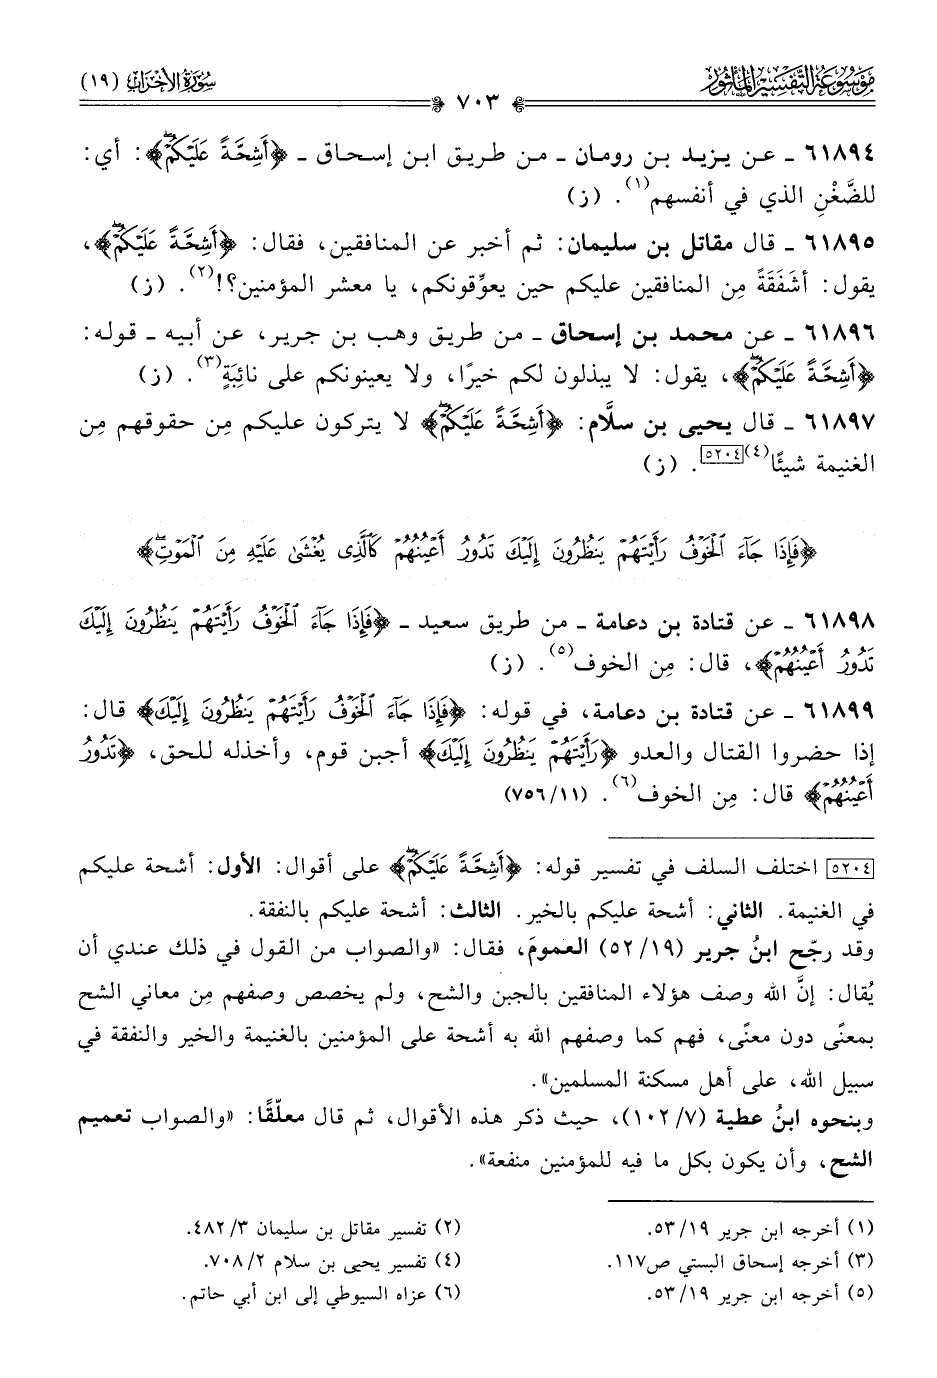 موسوعة التفسير المأثور
سورة الأحزاب (١٩)
٧٠٣
٦١٨٩٤ ـ عن يزيد بن رومان ـ من طريق ابن إسحاق ـ ﴿أَشِحَّةً عَلَيْكُمْ﴾: أي:
للضَّغْنِ الذي في أنفسهم(١). (ز)
٦١٨٩٥ ـ قال مقاتل بن سليمان: ثم أخبر عن المنافقين، فقال: ﴿أَشِحَّةً عَلَيْكُمْ﴾،
يقول: أشَفَقَةً مِن المنافقين عليكم حين يعوِّقونكم، يا معشر المؤمنين؟!(٢). (ز)
٦١٨٩٦ ـ عن محمد بن إسحاق ـ من طريق وهب بن جرير، عن أبيه ـ قوله:
﴿أَشِحَّةً عَلَيْكُمْ﴾، يقول: لا يبذلون لكم خيرًا، ولا يعينونكم على نائبَةٍ(٣). (ز)
٦١٨٩٧ ـ قال يحيى بن سلَّام: ﴿أَشِحَّةً عَلَيْكُمْ﴾ لا يتركون عليكم مِن حقوقهم مِن
الغنيمة شيئًا(٤)[٥٢٠٤]. (ز)
﴿فَإِذَا جَآءَ ٱلْخَوْفُ رَأَيْتَهُمْ يَنظُرُونَ إِلَيْكَ تَدُورُ أَعْيُنُهُمْ كَٱلَّذِى يُغْشَىٰ عَلَيْهِ مِنَ ٱلْمَوْتِ﴾
٦١٨٩٨ ـ عن قتادة بن دعامة ـ من طريق سعيد ـ ﴿فَإِذَا جَآءَ ٱلْخَوْفُ رَأَيْتَهُمْ يَنظُرُونَ إِلَيْكَ
تَدُورُ أَعْيُنُهُمْ﴾، قال: مِن الخوف(٥). (ز)
٦١٨٩٩ ـ عن قتادة بن دعامة، في قوله: ﴿فَإِذَا جَآءَ ٱلْخَوْفُ رَأَيْتَهُمْ يَنظُرُونَ إِلَيْكَ﴾ قال:
إذا حضروا القتال والعدو ﴿رَأَيْتَهُمْ يَنظُرُونَ إِلَيْكَ﴾ أجبن قوم، وأخذله للحق، ﴿تَدُورُ
أَعْيُنُهُمْ﴾ قال: مِن الخوف(٦). (١١/٧٥٦)
[٥٢٠٤] اختلف السلف في تفسير قوله: ﴿أَشِحَّةً عَلَيْكُمْ﴾ على أقوال: الأول: أشحة عليكم
في الغنيمة. الثاني: أشحة عليكم بالخير. الثالث: أشحة عليكم بالنفقة.
وقد رجّح ابنُ جرير (١٩/٥٢) العمومَ، فقال: «والصواب من القول في ذلك عندي أن
يُقال: إنَّ الله وصف هؤلاء المنافقين بالجبن والشح، ولم يخصص وصفهم مِن معاني الشح
بمعنًى دون معنًى، فهم كما وصفهم الله به أشحة على المؤمنين بالغنيمة والخير والنفقة في
سبيل الله، على أهل مسكنة المسلمين».
وبنحوه ابنُ عطية (٧/١٠٢)، حيث ذكر هذه الأقوال، ثم قال معلّقًا: «والصواب تعميم
الشح، وأن يكون بكل ما فيه للمؤمنين منفعة».
(١) أخرجه ابن جرير ١٩/٥٣.
(٢) تفسير مقاتل بن سليمان ٣/٤٨٢.
(٣) أخرجه إسحاق البستي ص١١٧.
(٤) تفسير يحيى بن سلام ٢/٧٠٨.
(٥) أخرجه ابن جرير ١٩/٥٣.
(٦) عزاه السيوطي إلى ابن أبي حاتم.